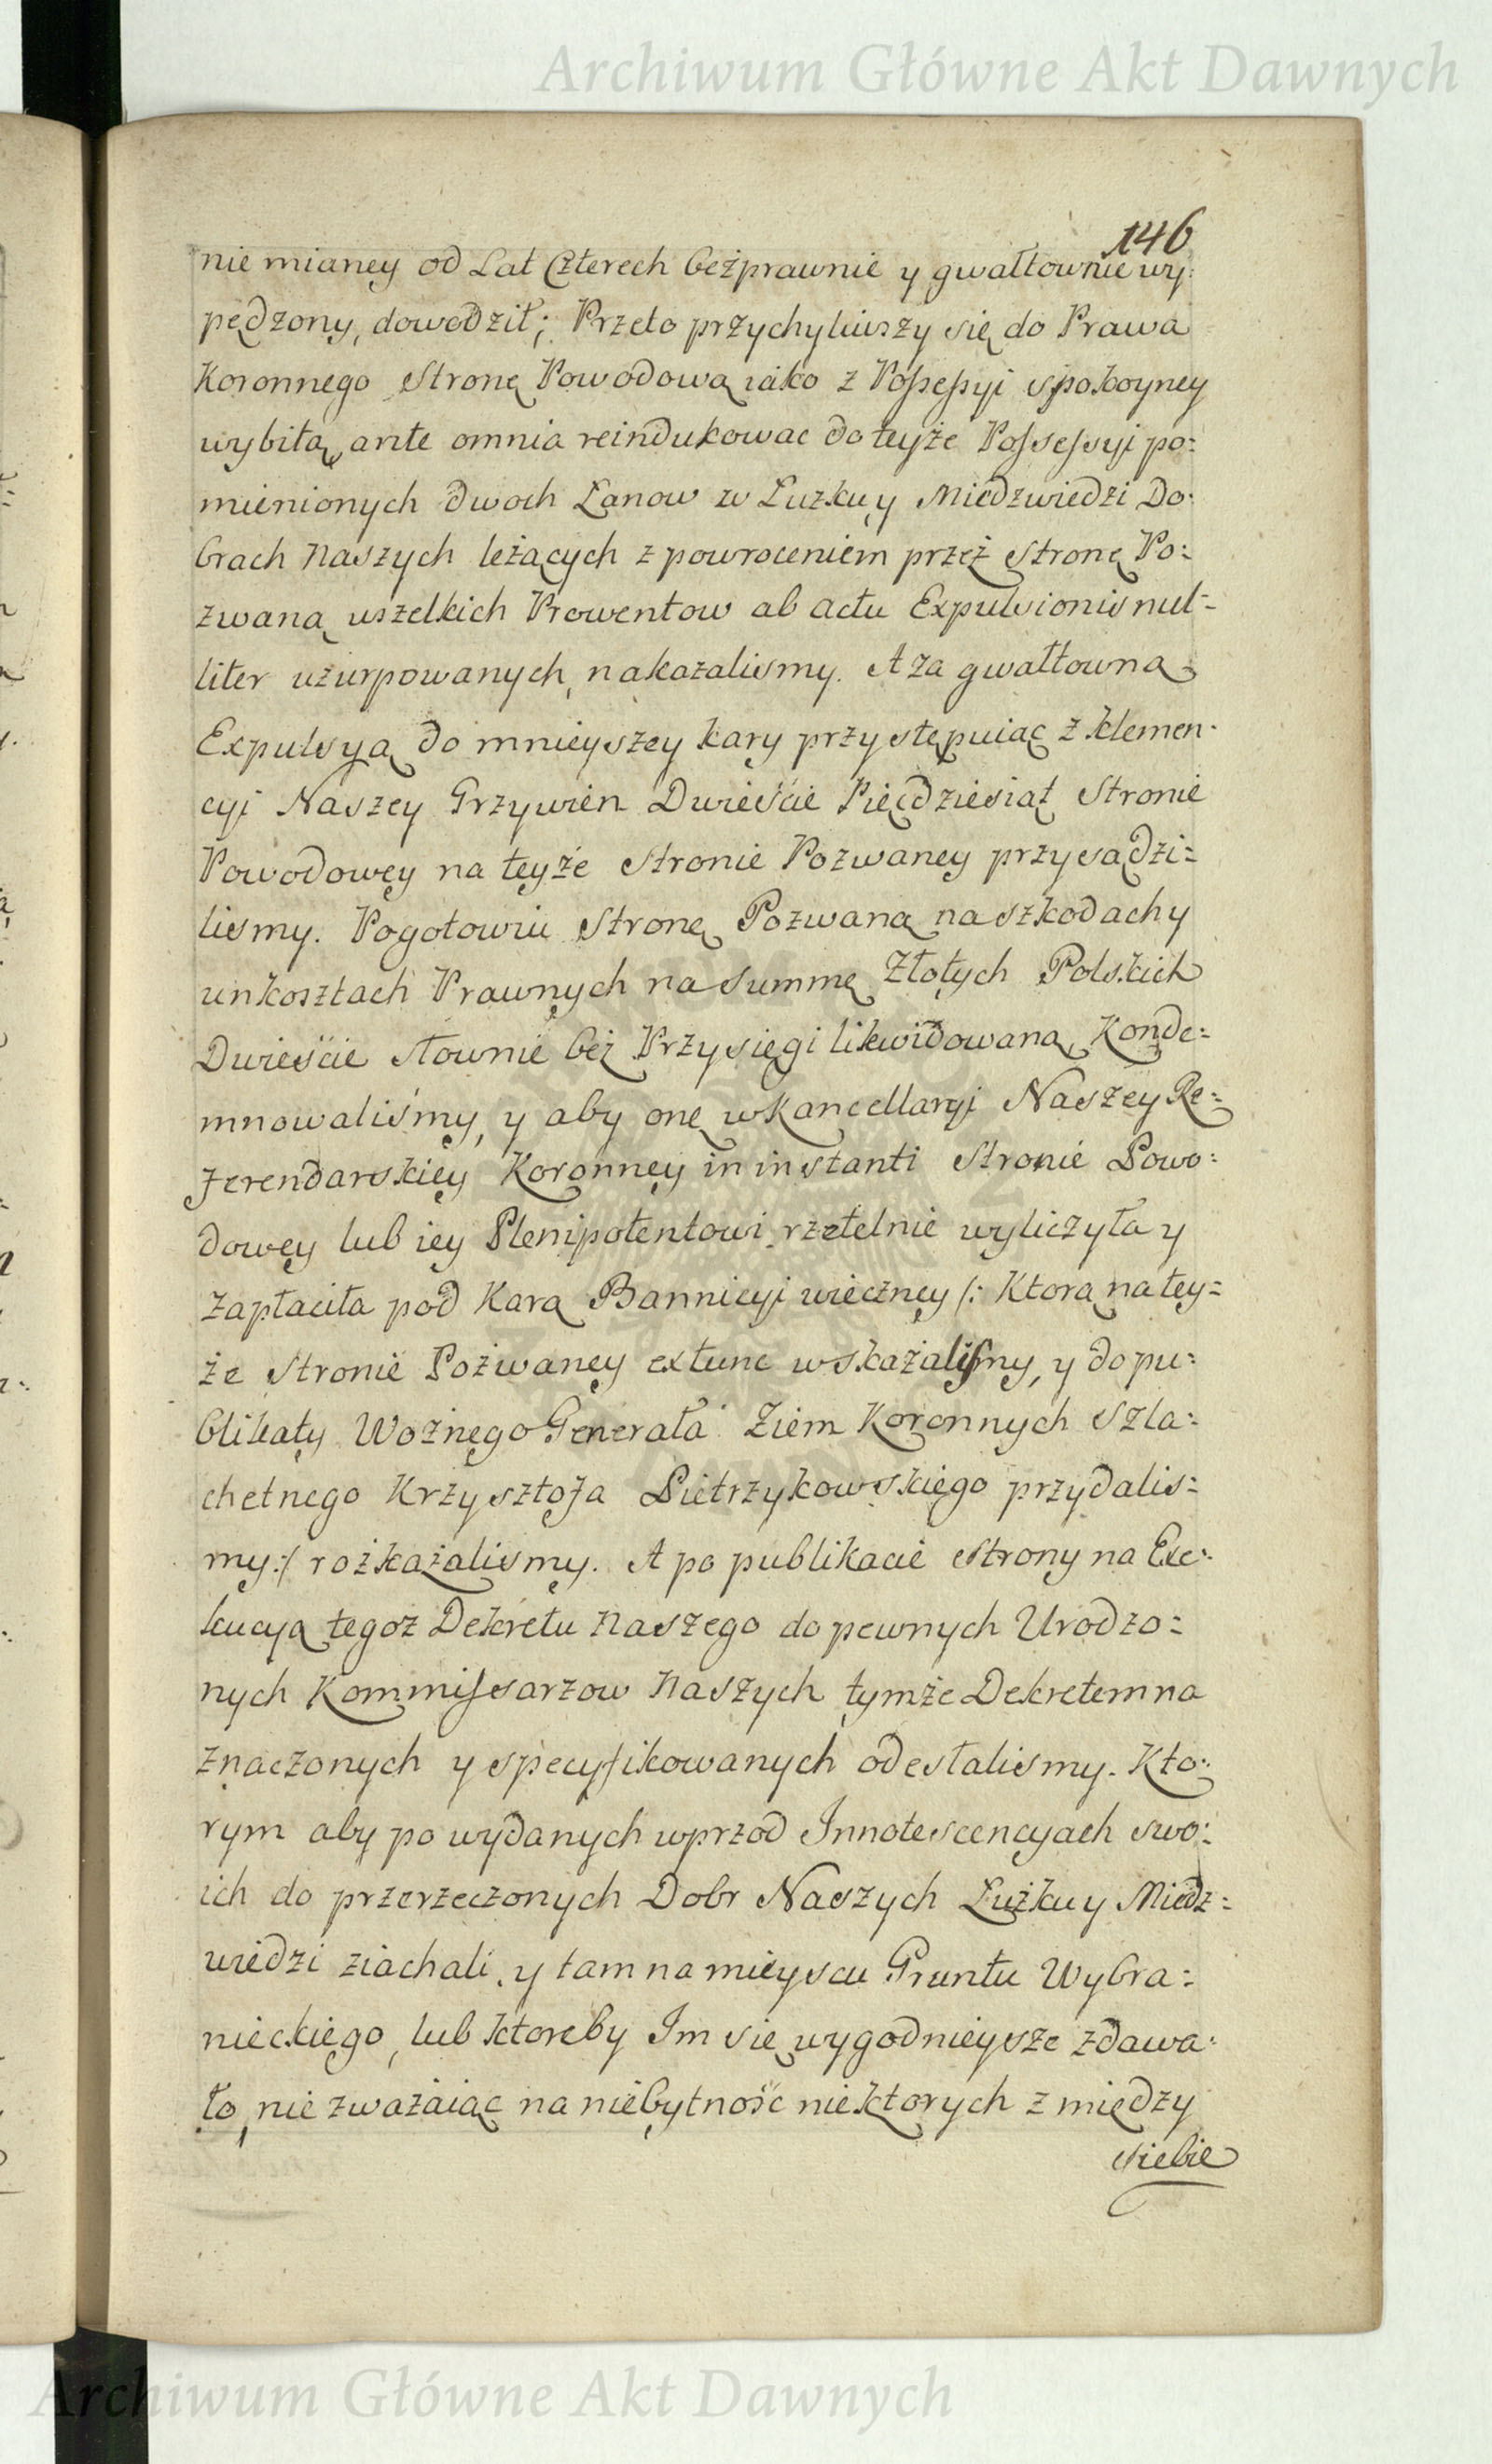 Archiwum Główne Akt Dawnych
146
nie mianey od Lat Czterech beżprawnie y gwałtownie wy:
pędzony, dowodził; Przeto przychyliwszy się do Prawa
Koronnego Stronę Powodową iako z Possessyi spokoyney
wybitą, ante omnia reindukowac do teyże Possessyi po:
mienionych dwoch Łanow w Łuzku y Miedzwiedzi Do:
brach Naszych leżących z powroceniem przeż Stronę Po:
zwaną wszelkich Prowentow ab actu Expulsionis nul=
liter uzurpowanych, nakazalismy. A za gwałtowną
Expulsyą do mnieyszey kary przystępuiąc z klemen:
cyi Naszey Grzywien Dwieście Pięcdziesiąt Stronie
Powodowey na teyże Stronie Pozwaney przysądzi=
lismy. Pogotowiu Stronę Pozwaną na szkodach y
unkosztach Prawnych na Summę Złotych Polskich
Dwieście słownie beż Przysięgi likwidowaną, Konde=
mnowaliśmy, y aby onę w Kancellaryi Naszey Re=
ferendarskiey Koronney in instanti Stronie Powo:
dowey lub iey Plenipotentowi rzetelnie wyliczyła y
zapłaciła pod Karą Bannicyi wieczney /: Ktorą na tey=
że Stronie Pożwaney extunc wskażalismy, y do pu=
blikaty Wożnego Generała Ziem Koronnych Szla=
chetnego Krzysztofa Pietrzykowskiego przydalis=
my:/ rożkażalismy. A po publikacie Strony na Exe:
kucyą tegoż Dekretu Naszego do pewnych Urodzo=
nych Kommissarzow Naszych tymże Dekretem na
znaczonych y specyfikowanych odesłalismy. Kto:
rym aby po wydanych wprzod Innotescencyach swo:
ich do przerzeczonych Dobr Naszych Łużku y Miedz=
wiedzi ziachali, y tam na mieyscu Gruntu Wybra=
nieckiego, lub ktoreby Im się wygodnieysze zdawa:
ło, nie zważaiąc na niebytność niektorych z między
siebie
Archiwum Główne Akt Dawnych